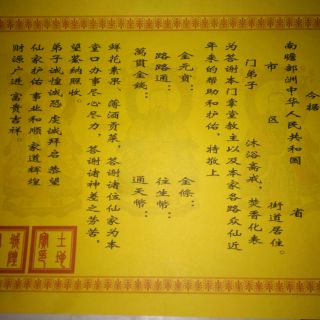 今据
南瞻部洲中华人民共和国 省
市 区 街道居住。
门弟子 沐浴斋戒，焚香化表
为答谢本门掌堂教主以及本家各路众仙近
年来的帮助和护佑，特敬上
金元宝： 金条：
路路通： 往生币：
万贯金钱： 通天币：
鲜花素果、薄酒贡菜，答谢诸位仙家为本
堂口办事尽心尽力，答谢诸神圣之劳苦，
望鉴纳照收。
弟子诚惶诚恐 虔诚拜启 恭望
仙家护佑 事业和顺 家道辉煌
财源广进 富贵吉祥。
土地
城隍